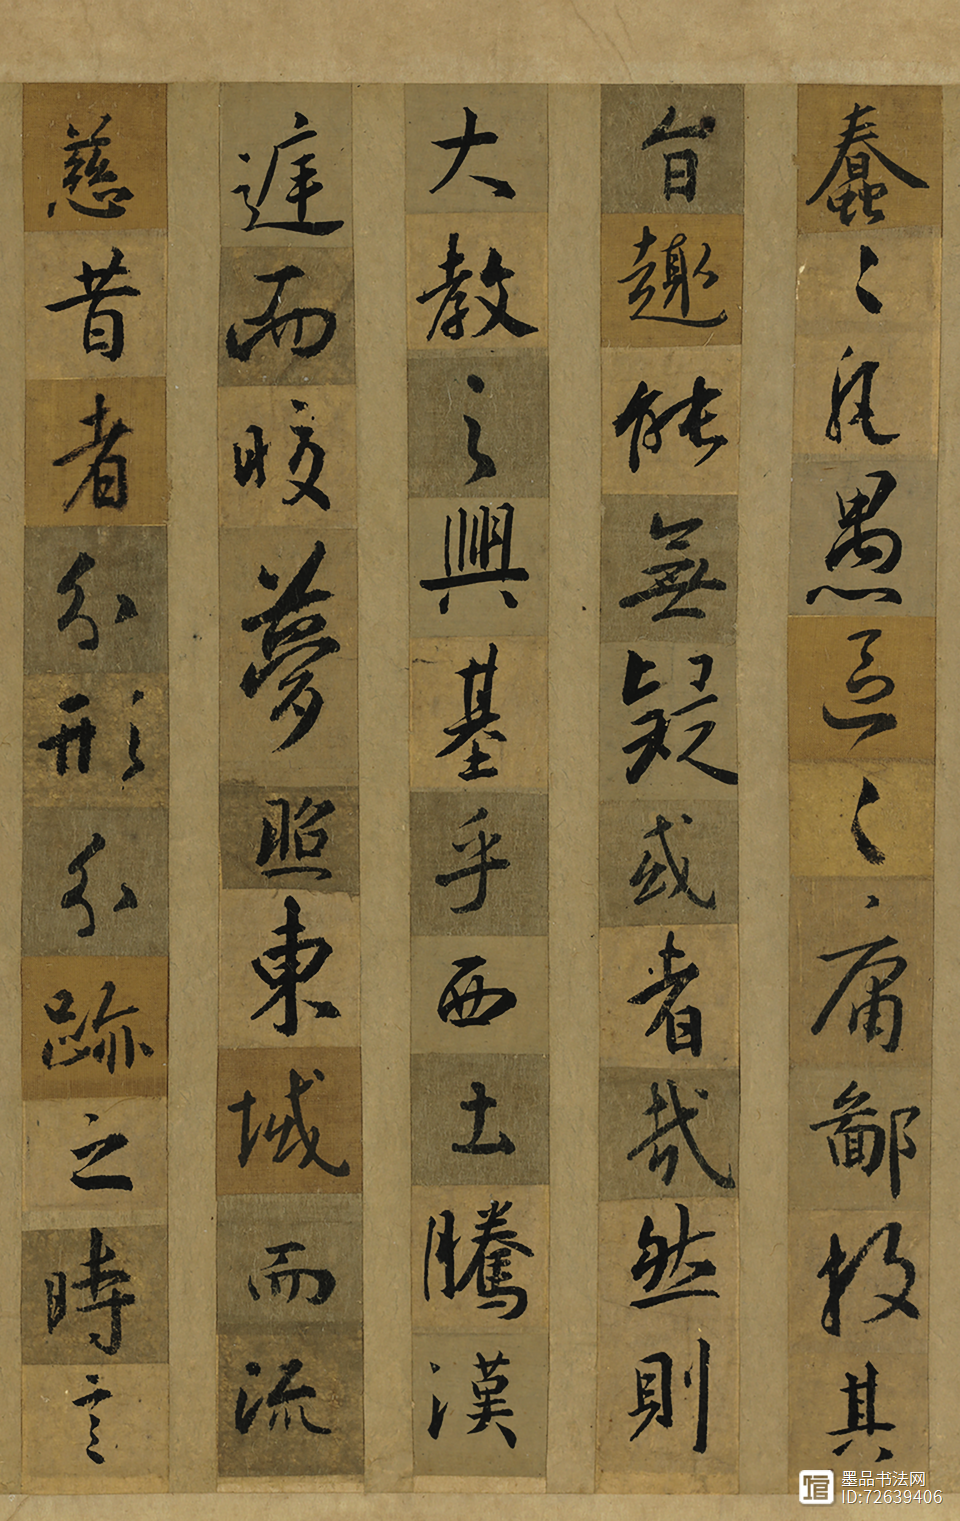 蠢々凡愚區々庸鄙投其
旨趣能無疑惑者哉然則
大教之興基乎西土騰漢
庭而皎夢照東域而流
慈昔者分形分跡之時言
墨品书法网
ID:72639406